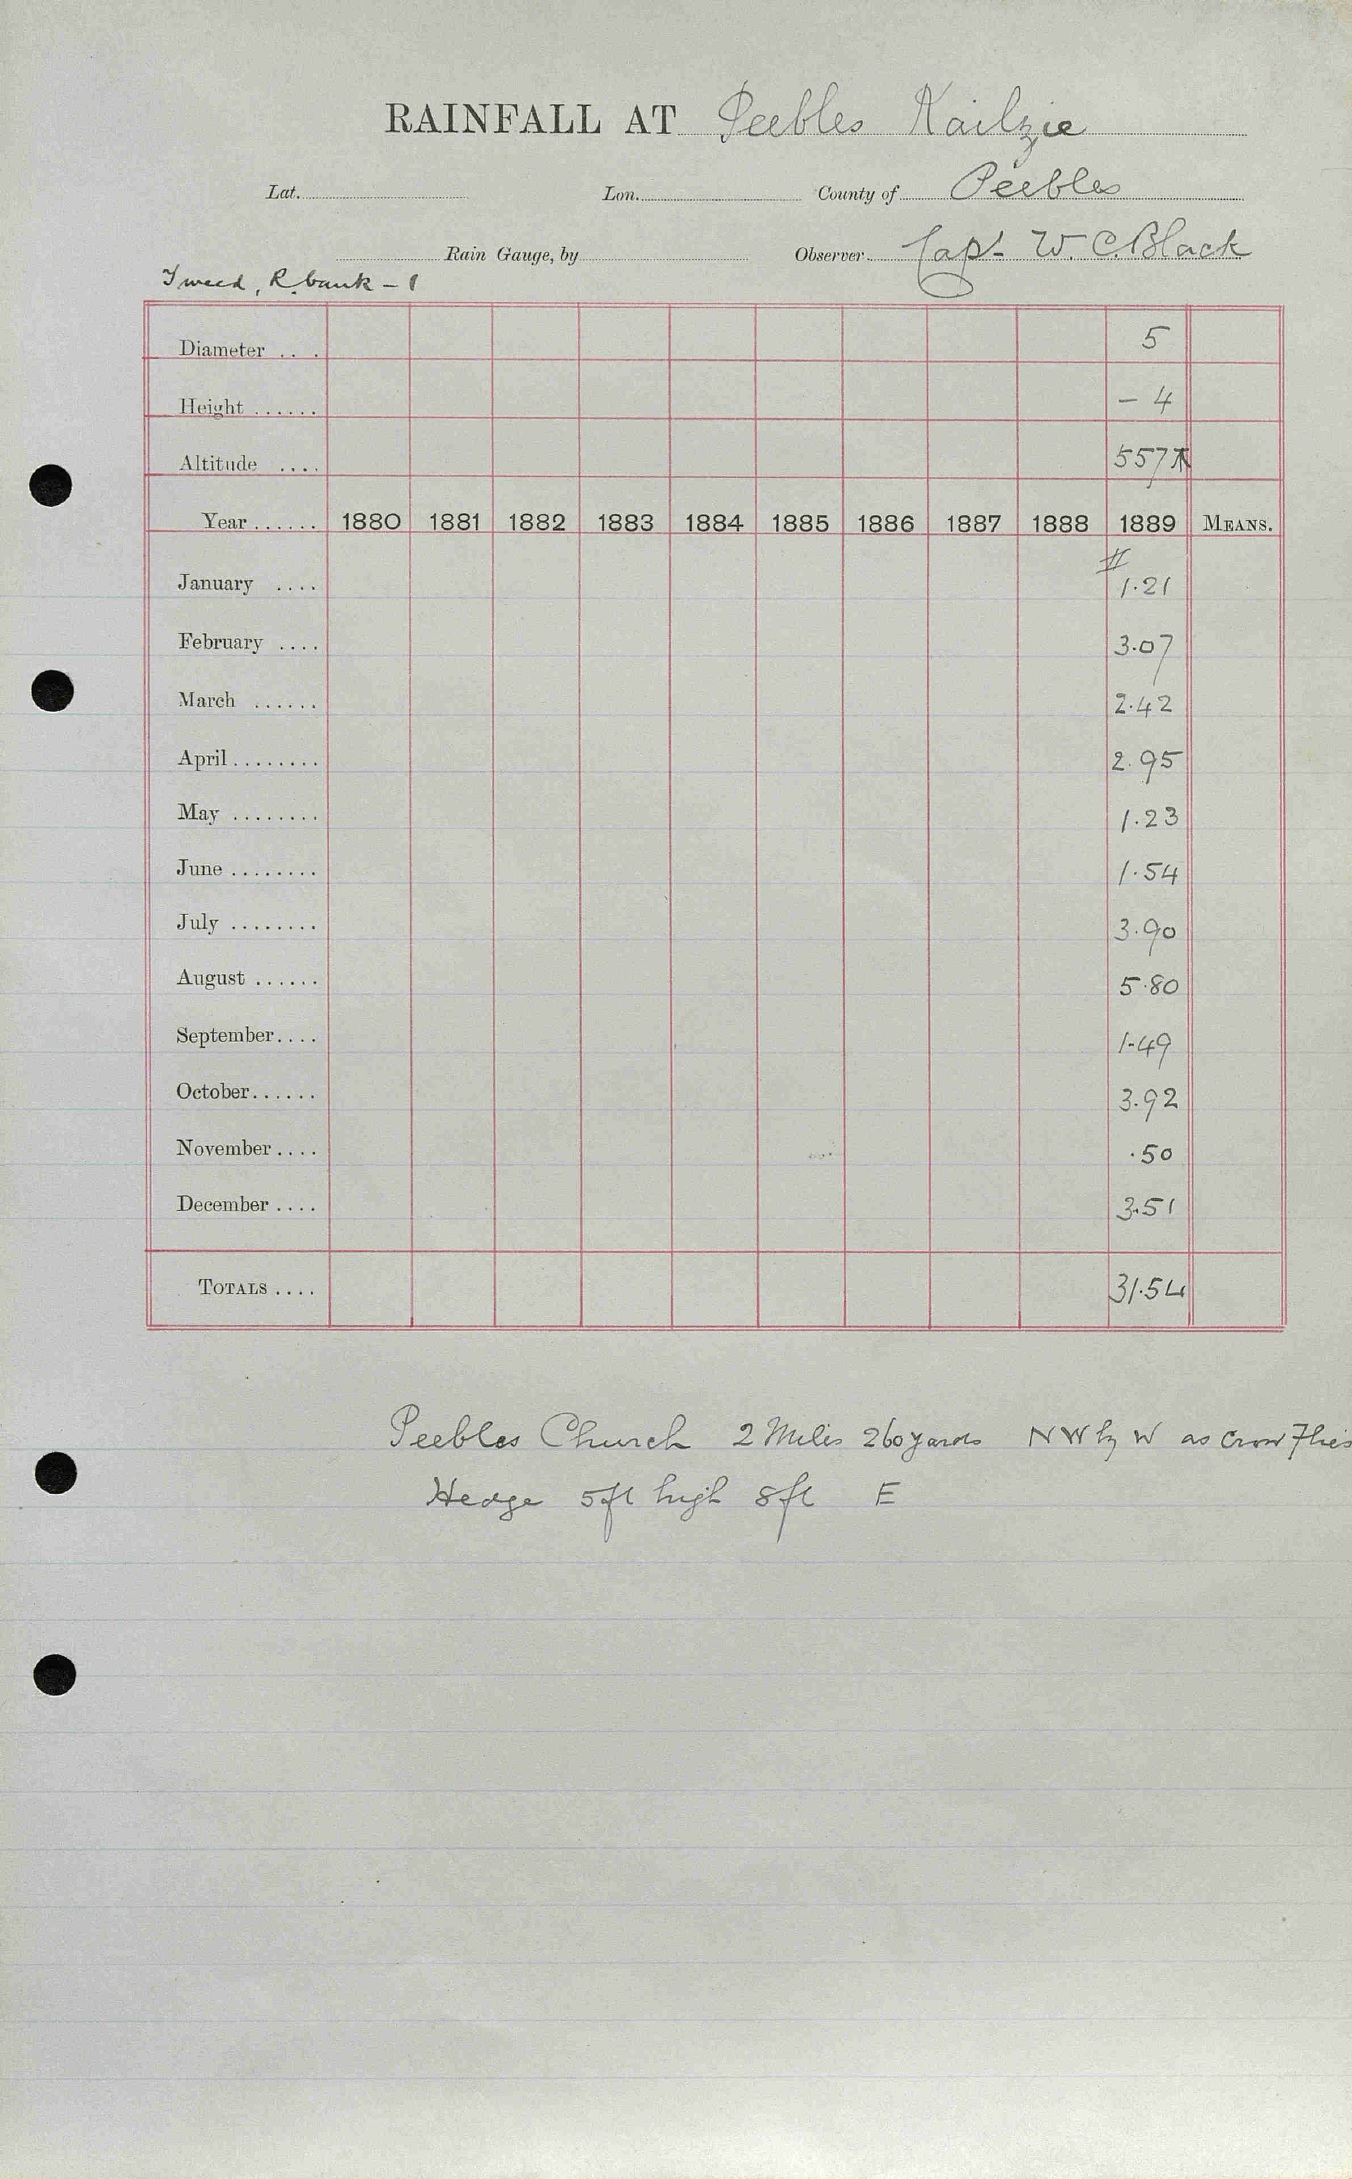 RAINFALL AT Peebles Kailzie
Lat. Lon. County of Peebles
Rain Gauge, by Observer Capt W. C. Black
Tweed, R. bank – 1
Diameter . . . 5
Height . . . . . . – 4
Altitude . . . . 557
Year . . . . . . 1880 1881 1882 1883 1884 1885 1886 1887 1888 1889 MEANS.
January . . . . 1.21
February . . . . 3.07
March . . . . . . 2.42
April . . . . . . . . 2.95
May . . . . . . . . 1.23
June . . . . . . . . 1.54
July . . . . . . . . 3.90
August . . . . . . 5.80
September . . . . 1.49
October . . . . . . 3.92
November . . . . .50
December . . . . 3.51
TOTALS . . . . 31.54
Peebles Church 2 Miles 260 yards NW by W as Crow Flies
Hedge 5ft high 8ft E